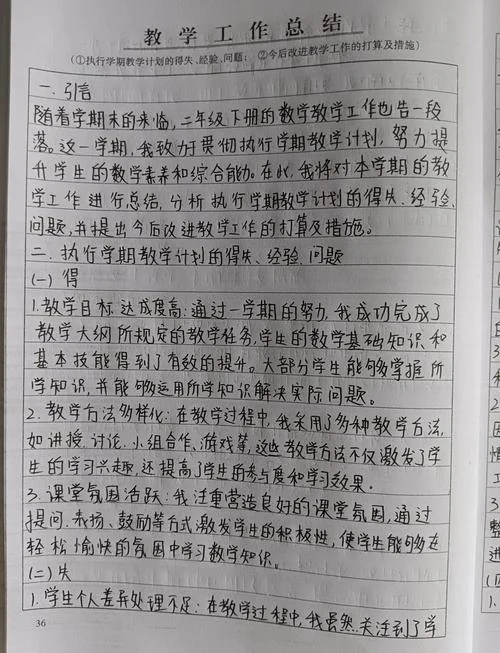 教学工作总结
(①执行学期教学计划的得失、经验、问题；②今后改进教学工作的打算及措施)
一. 引言
随着学期末的来临，二年级下册的数学教学工作也告一段
落。这一学期，我致力于贯彻执行学期教学计划，努力提
升学生的数学素养和综合能力。在此，我将对本学期的教
学工作进行总结，分析执行学期教学计划的得失、经验、
问题，并提出今后改进教学工作的打算及措施。
二、执行学期教学计划的得失、经验、问题
(一) 得
1.教学目标达成度高：通过一学期的努力，我成功完成了
教学大纲所规定的教学任务，学生的数学基础知识和
基本技能得到了有效的提升。大部分学生能够掌握所
学知识，并能够运用所学知识解决实际问题。
2.教学方法多样化：在教学过程中，我采用了多种教学方法，
如讲授、讨论、小组合作、游戏等，这些教学方法不仅激发了学
生的学习兴趣，还提高了学生的参与度和学习效果。
3.课堂氛围活跃：我注重营造良好的课堂氛围，通过
提问、表扬、鼓励等方式激发学生的积极性，使学生能够在
轻松愉快的氛围中学习数学知识。
(二)失
1.学生个人差异处理不足：在教学过程中，我虽然关注到了学
36
2
3.
整
进
1.